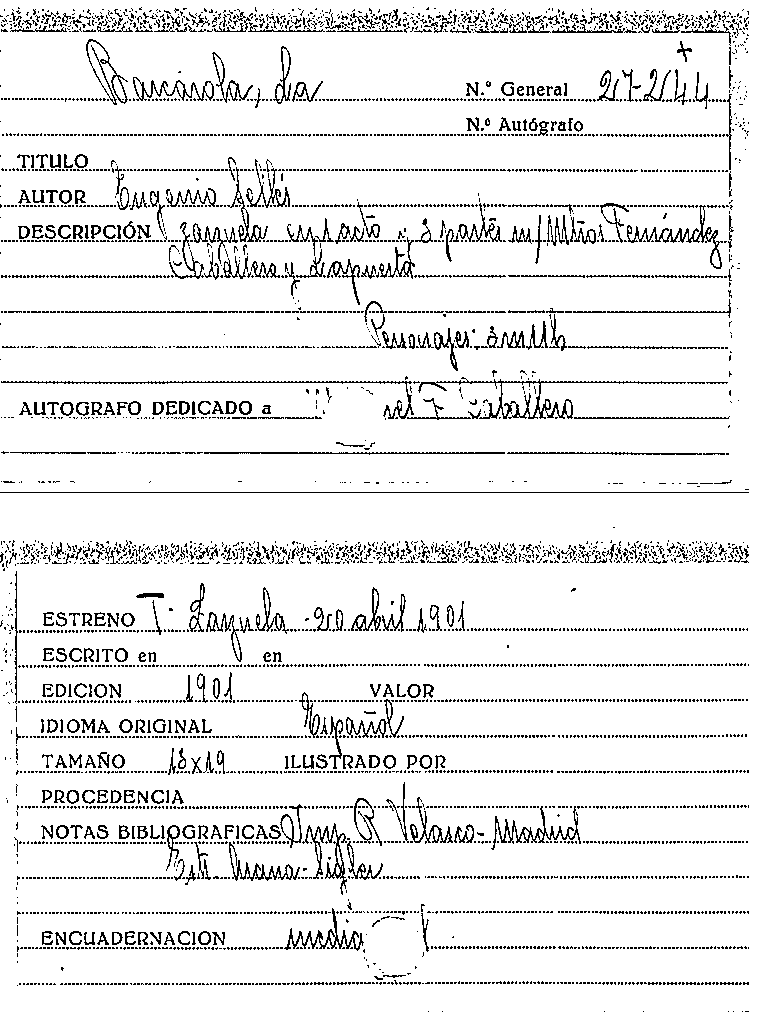 Barcarola, La
N.º General 27-244
N.º Autógrafo
TITULO
AUTOR Eugenio Sellés
DESCRIPCIÓN Zarzuela en 1 acto y 3 partes m/ Mtros Fernández
Caballero y Lapuerta
Personajes:
AUTOGRAFO DEDICADO a F Caballero
ESTRENO T. Zarzuela - 20 abril 1901
ESCRITO en en
EDICION 1901 VALOR
IDIOMA ORIGINAL Español
TAMAÑO 13x19 ILUSTRADO POR
PROCEDENCIA
NOTAS BIBLIOGRAFICAS Imp. R Velasco - Madrid
ENCUADERNACION media